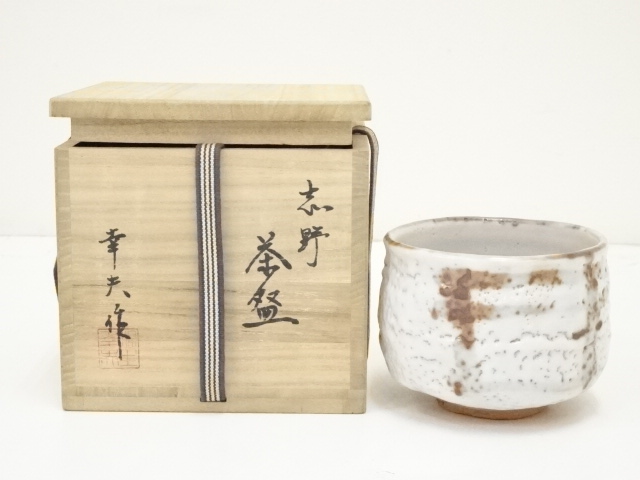 志野
茶盌
幸夫作